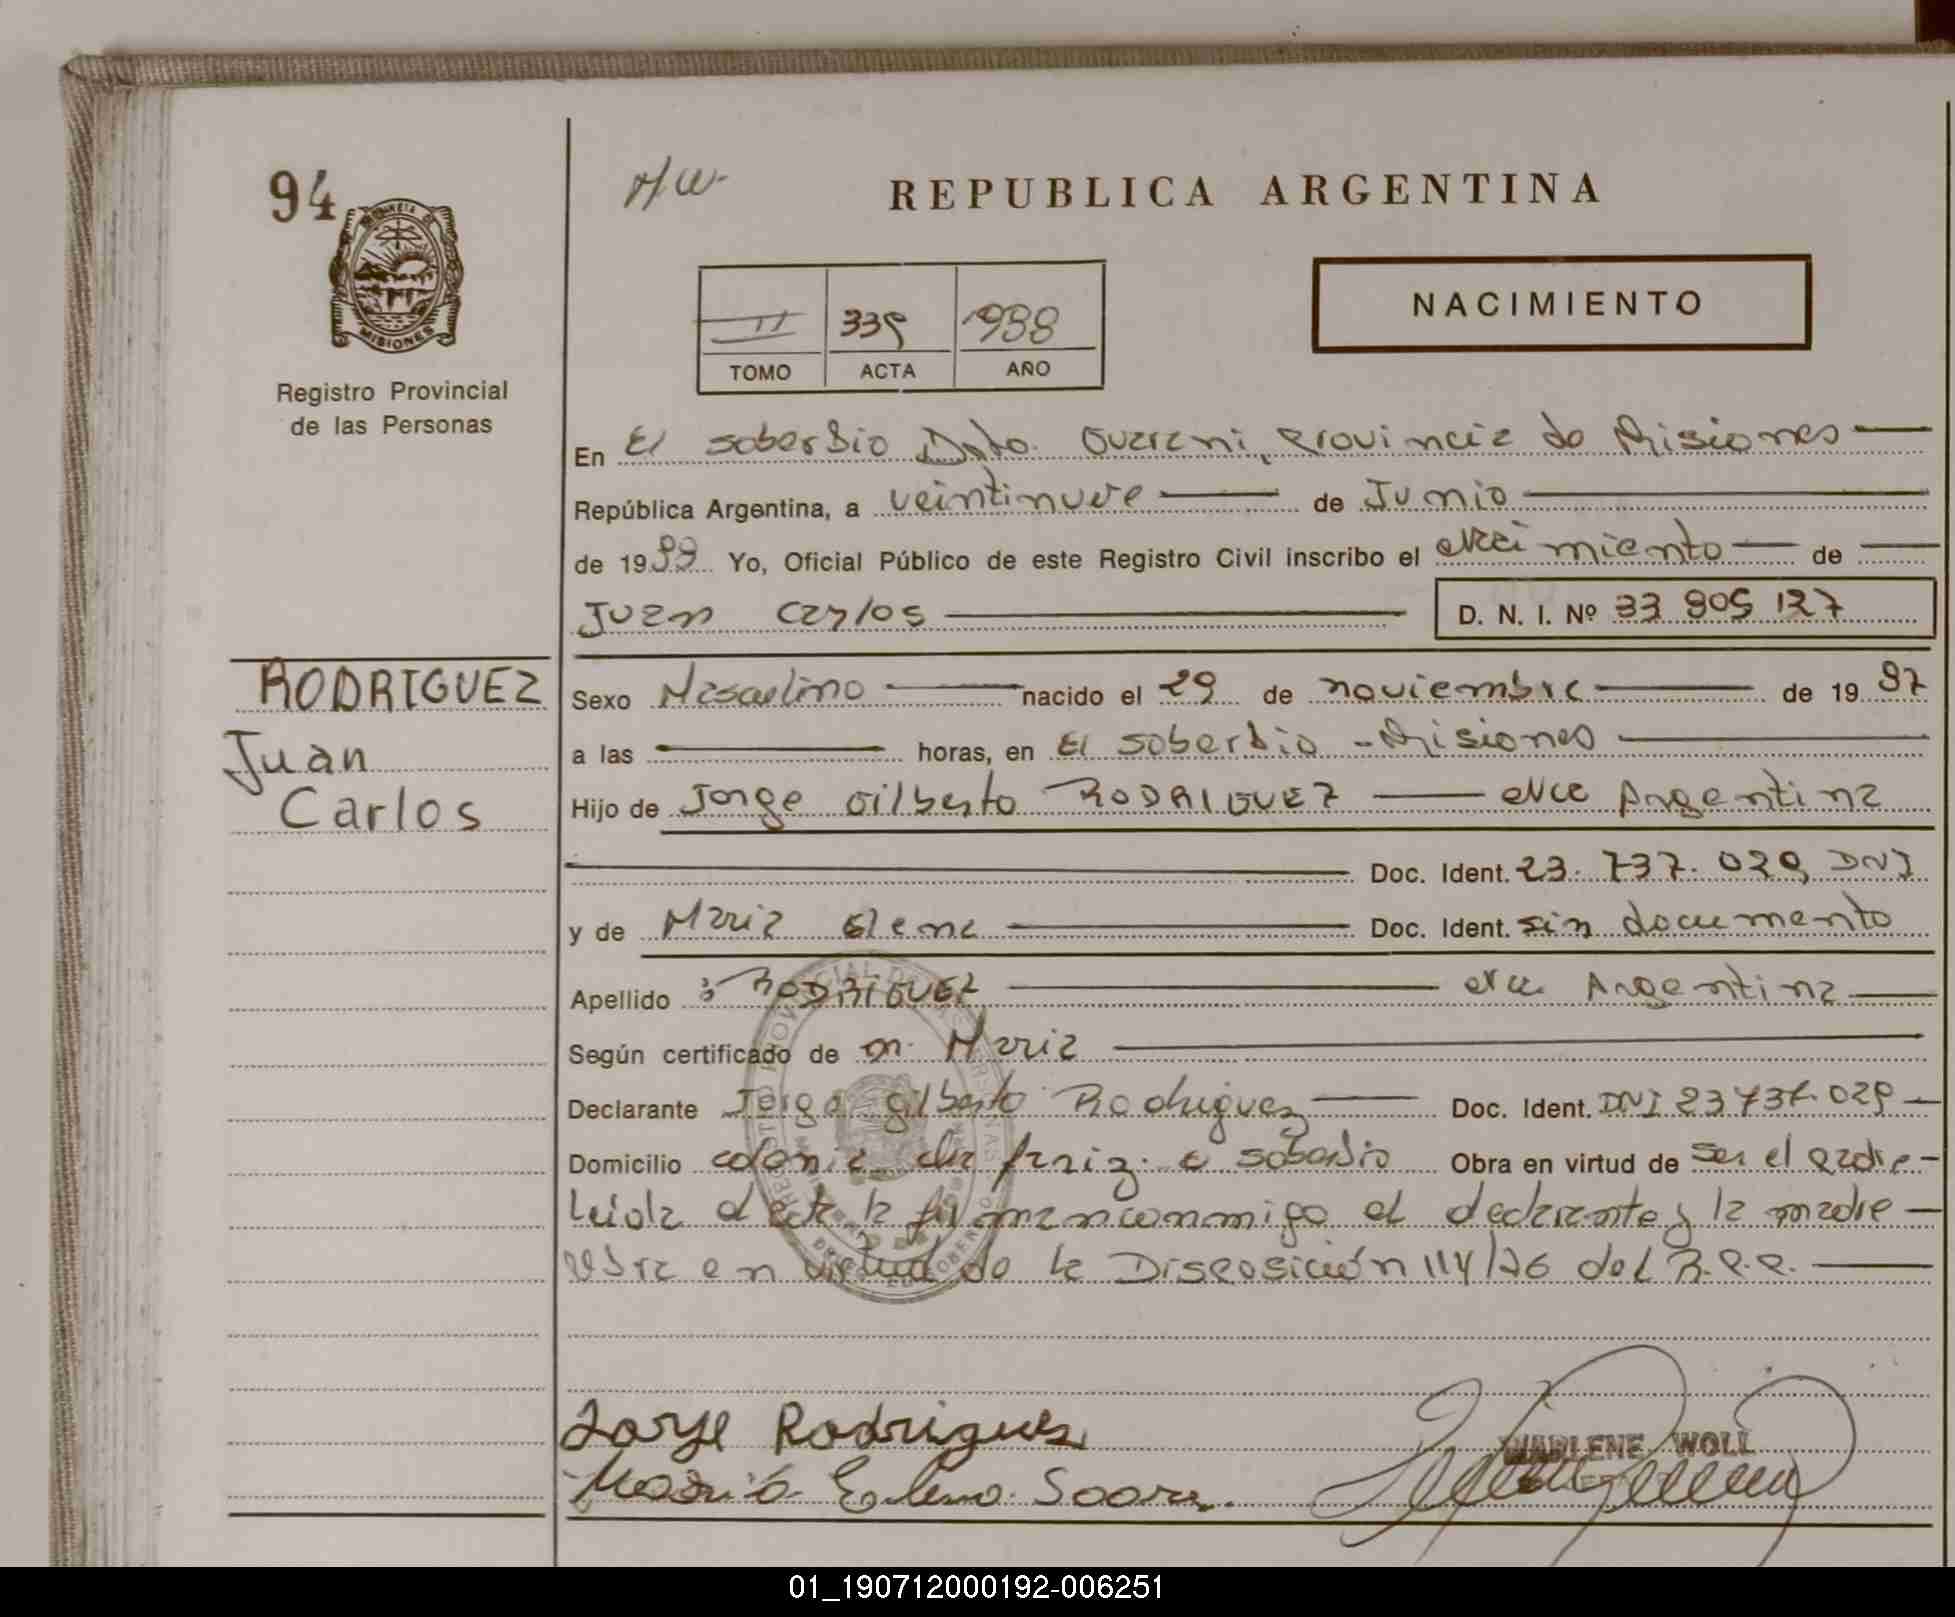 94
H/W-
REPUBLICA ARGENTINA
PROVINCIA DE
MISIONES
Registro Provincial
de las Personas
II 339 1988
TOMO ACTA AÑO
NACIMIENTO
En El soberbio Dpto. Guarani, Provincia de Misiones
República Argentina, a veintinueve de Junio
de 1988 Yo, Oficial Público de este Registro Civil inscribo el Naci miento de
Juan Carlos D. N. I. Nº 33 905 127
RODRIGUEZ
Juan
Carlos
Sexo Masculino nacido el 29 de noviembre de 19 87
a las horas, en El soberbio - Misiones
Hijo de Jorge Gilberto RODRIGUEZ Nac Argentina
Doc. Ident. 23. 737. 029 DNI
y de Maria Elena Doc. Ident. sin documento
Apellido RODRIGUEZ Nac. Argentina
Según certificado de m. Maria
Declarante Jorge Gilberto Rodriguez Doc. Ident. DNI 23 737. 029
Domicilio colonia soberbio Obra en virtud de ser el padre-
Leida el acta la firman conmigo el declarante y la madre
Obra en virtud de la Disposición 114/76 del R.P.P.
Jorge Rodrigues
Maria Elena Soares.
MARLENE WOLL
01_190712000192-006251